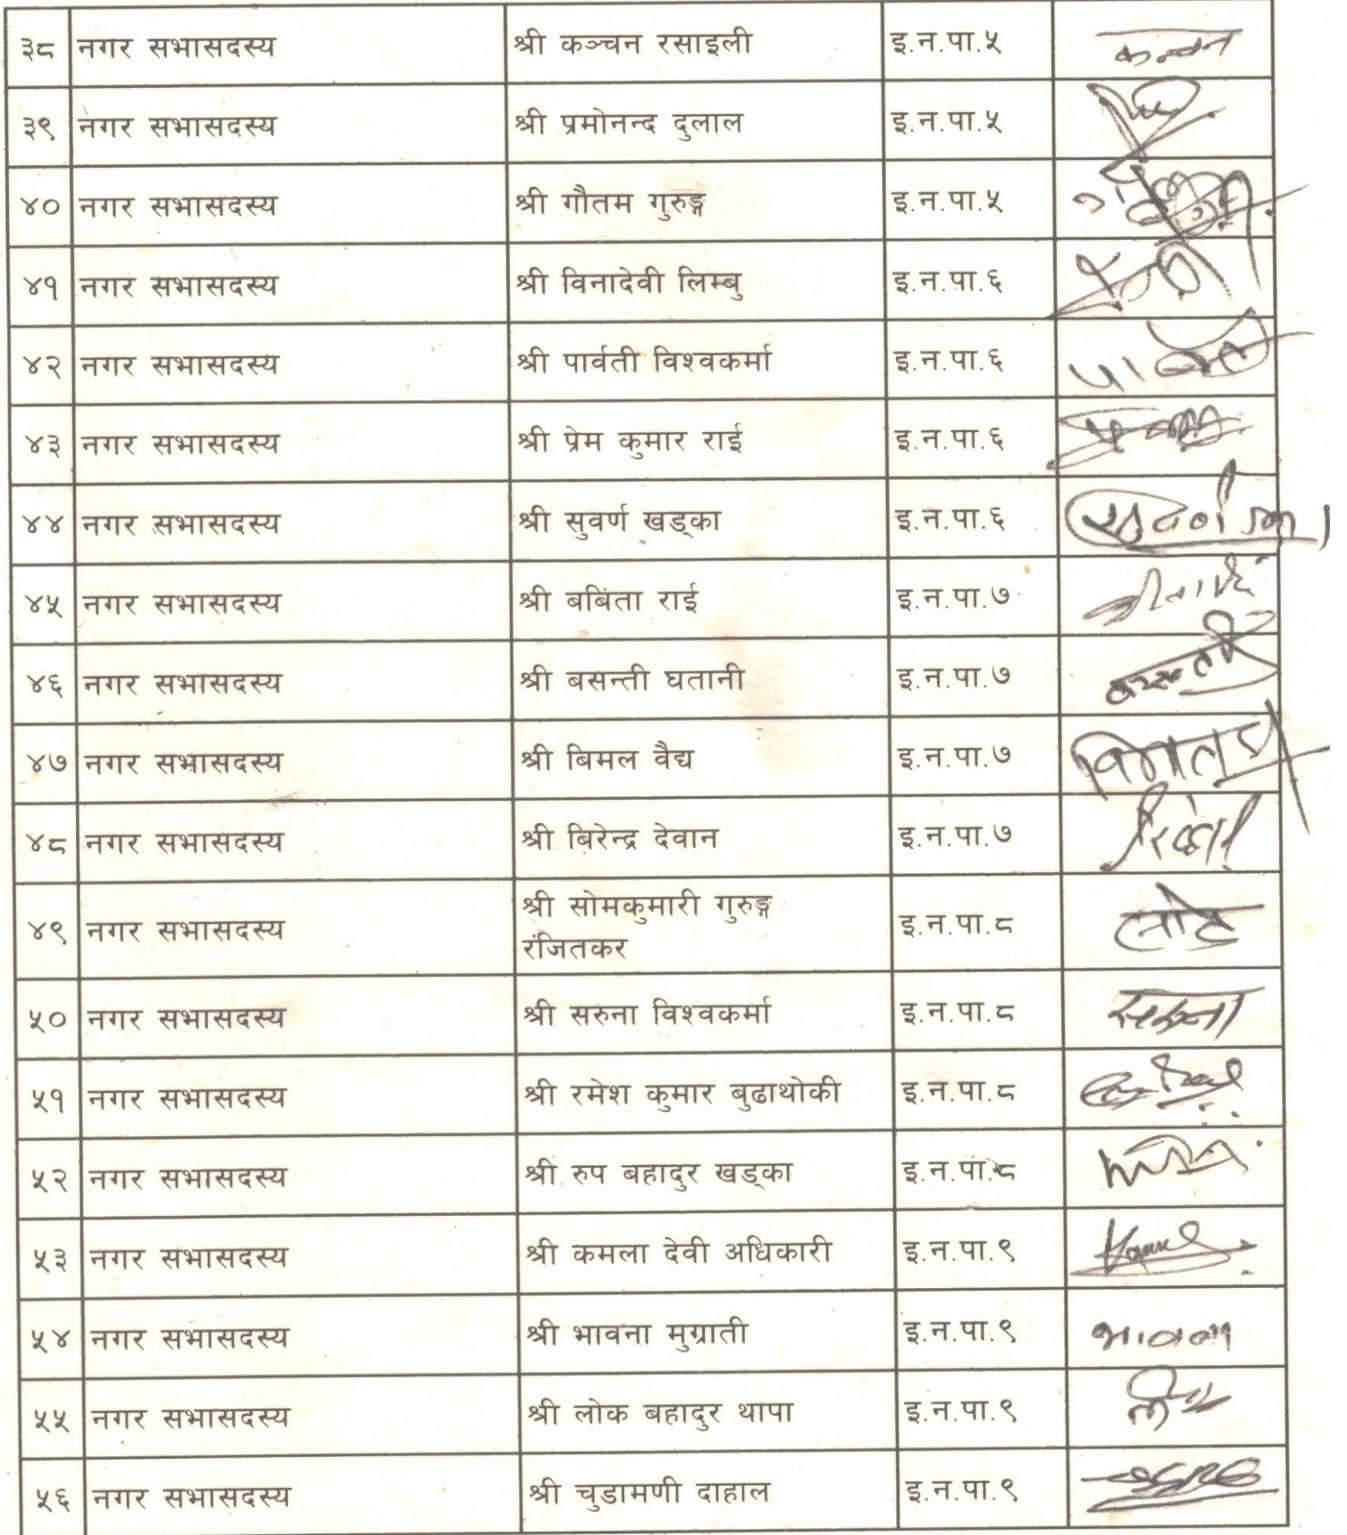 ३८ नगर सभासदस्य श्री कञ्चन रसाइली इ.न.पा.५ कन्चन
३९ नगर सभासदस्य श्री प्रमोनन्द दुलाल इ.न.पा.५
४० नगर सभासदस्य श्री गौतम गुरुङ्ग इ.न.पा.५
४१ नगर सभासदस्य श्री विनादेवी लिम्बु इ.न.पा.६
४२ नगर सभासदस्य श्री पार्वती विश्वकर्मा इ.न.पा.६
४३ नगर सभासदस्य श्री प्रेम कुमार राई इ.न.पा.६
४४ नगर सभासदस्य श्री सुवर्ण खड्का इ.न.पा.६
४५ नगर सभासदस्य श्री बबिता राई इ.न.पा.७
४६ नगर सभासदस्य श्री बसन्ती घतानी इ.न.पा.७
४७ नगर सभासदस्य श्री बिमल वैद्य इ.न.पा.७
४८ नगर सभासदस्य श्री बिरेन्द्र देवान इ.न.पा.७
४९ नगर सभासदस्य श्री सोमकुमारी गुरुङ्ग इ.न.पा.८
रंजितकर
५० नगर सभासदस्य श्री सरुना विश्वकर्मा इ.न.पा.८ सरुना
५१ नगर सभासदस्य श्री रमेश कुमार बुढाथोकी इ.न.पा.८
५२ नगर सभासदस्य श्री रुप बहादुर खड्का इ.न.पा.८
५३ नगर सभासदस्य श्री कमला देवी अधिकारी इ.न.पा.९
५४ नगर सभासदस्य श्री भावना मुग्राती इ.न.पा.९ भावना
५५ नगर सभासदस्य श्री लोक बहादुर थापा इ.न.पा.९
५६ नगर सभासदस्य श्री चुडामणी दाहाल इ.न.पा.९